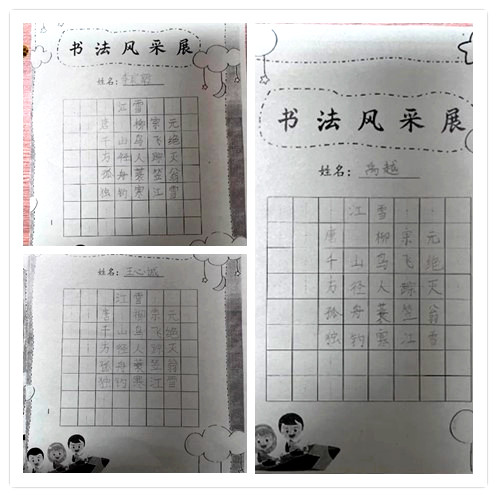 书法风采展
姓名：
江雪
唐 柳宗元
千山鸟飞绝
万径人踪灭
孤舟蓑笠翁
独钓寒江雪
姓名：王心
江雪
唐 柳宗元
千山鸟飞绝
万径人踪灭
孤舟蓑笠翁
独钓寒江雪
书法风采展
姓名：禹越
江雪
唐 柳宗元
千山鸟飞绝
万径人踪灭
孤舟蓑笠翁
独钓寒江雪